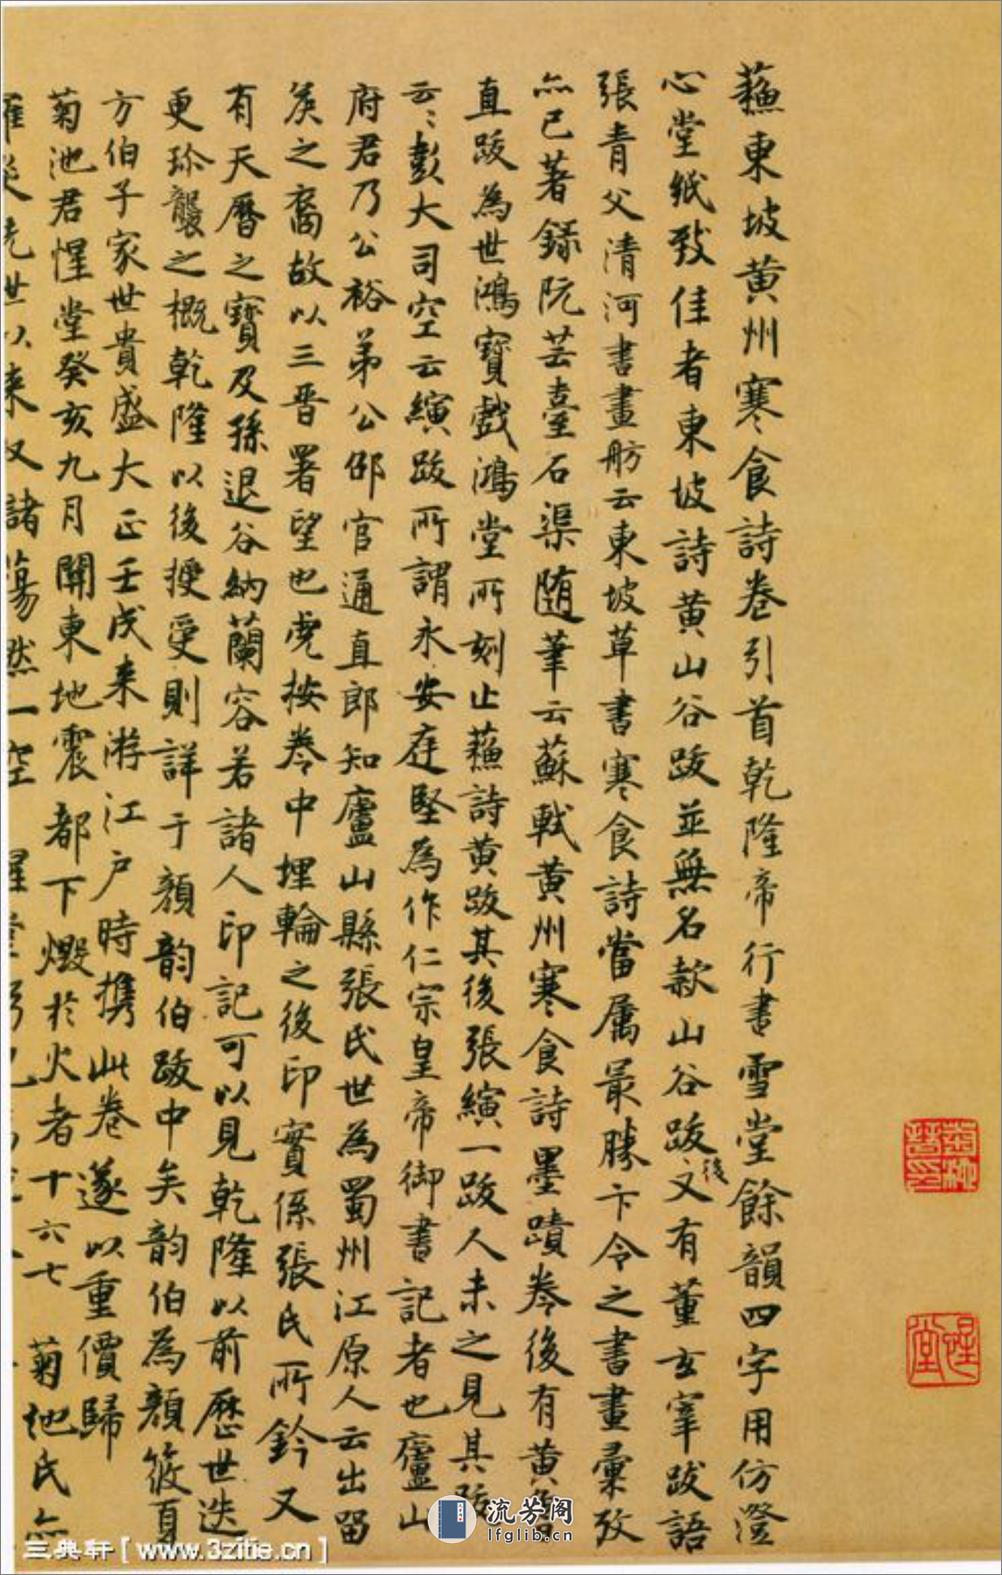 蘓東坡黄州寒食詩卷引首乾隆帝行書雪堂餘韻四字用仿澄
心堂紙致佳者東坡詩黄山谷跋並無名款山谷跋後又有董玄宰跋語
張青父清河書畫舫云東坡草書寒食詩當属最勝卞令之書畫彙攷
亦已著録阮芸臺石渠随筆云蘇軾黄州寒食詩墨蹟卷後有黄魯
直跋為世鴻寶戲鴻堂所刻止蘓詩黄跋其後張縯一跋人未之見其跋
云〻彭大司空云縯跋所謂永安庭堅為作仁宗皇帝御書記者也廬山
府君乃公裕弟公邵官通直郎知廬山縣張氏世為蜀州江原人云出留
侯之裔故以三晋署望也虎按卷中埋輪之後印實係張氏所鈐又
有天曆之寶及孫退谷納蘭容若諸人印記可以見乾隆以前歷世迭
更珍襲之概乾隆以後授受則詳于顔韵伯跋中矣韵伯為顔筱夏
方伯子家世貴盛大正壬戌来游江户時携此卷遂以重價歸
菊池君惺堂癸亥九月関東地震都下燬於火者十六七 菊池氏亦
罹災先世以来収諸蕩然一空 惺堂
菊池晋印
惺堂
流芳阁
lfglib.cn
三典轩[www.3zitie.cn]